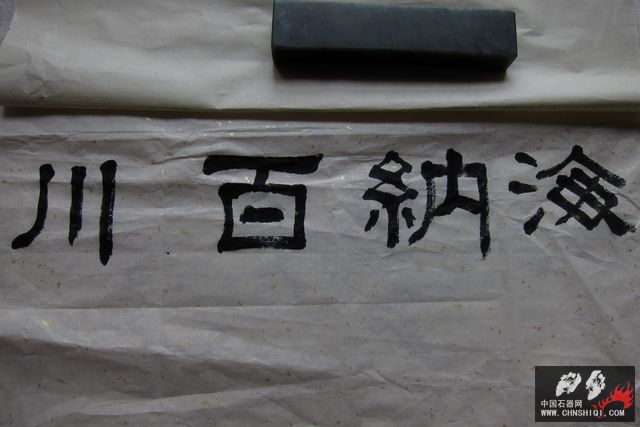 海納百川
中国石器网
WWW.CHNSHIQI.COM